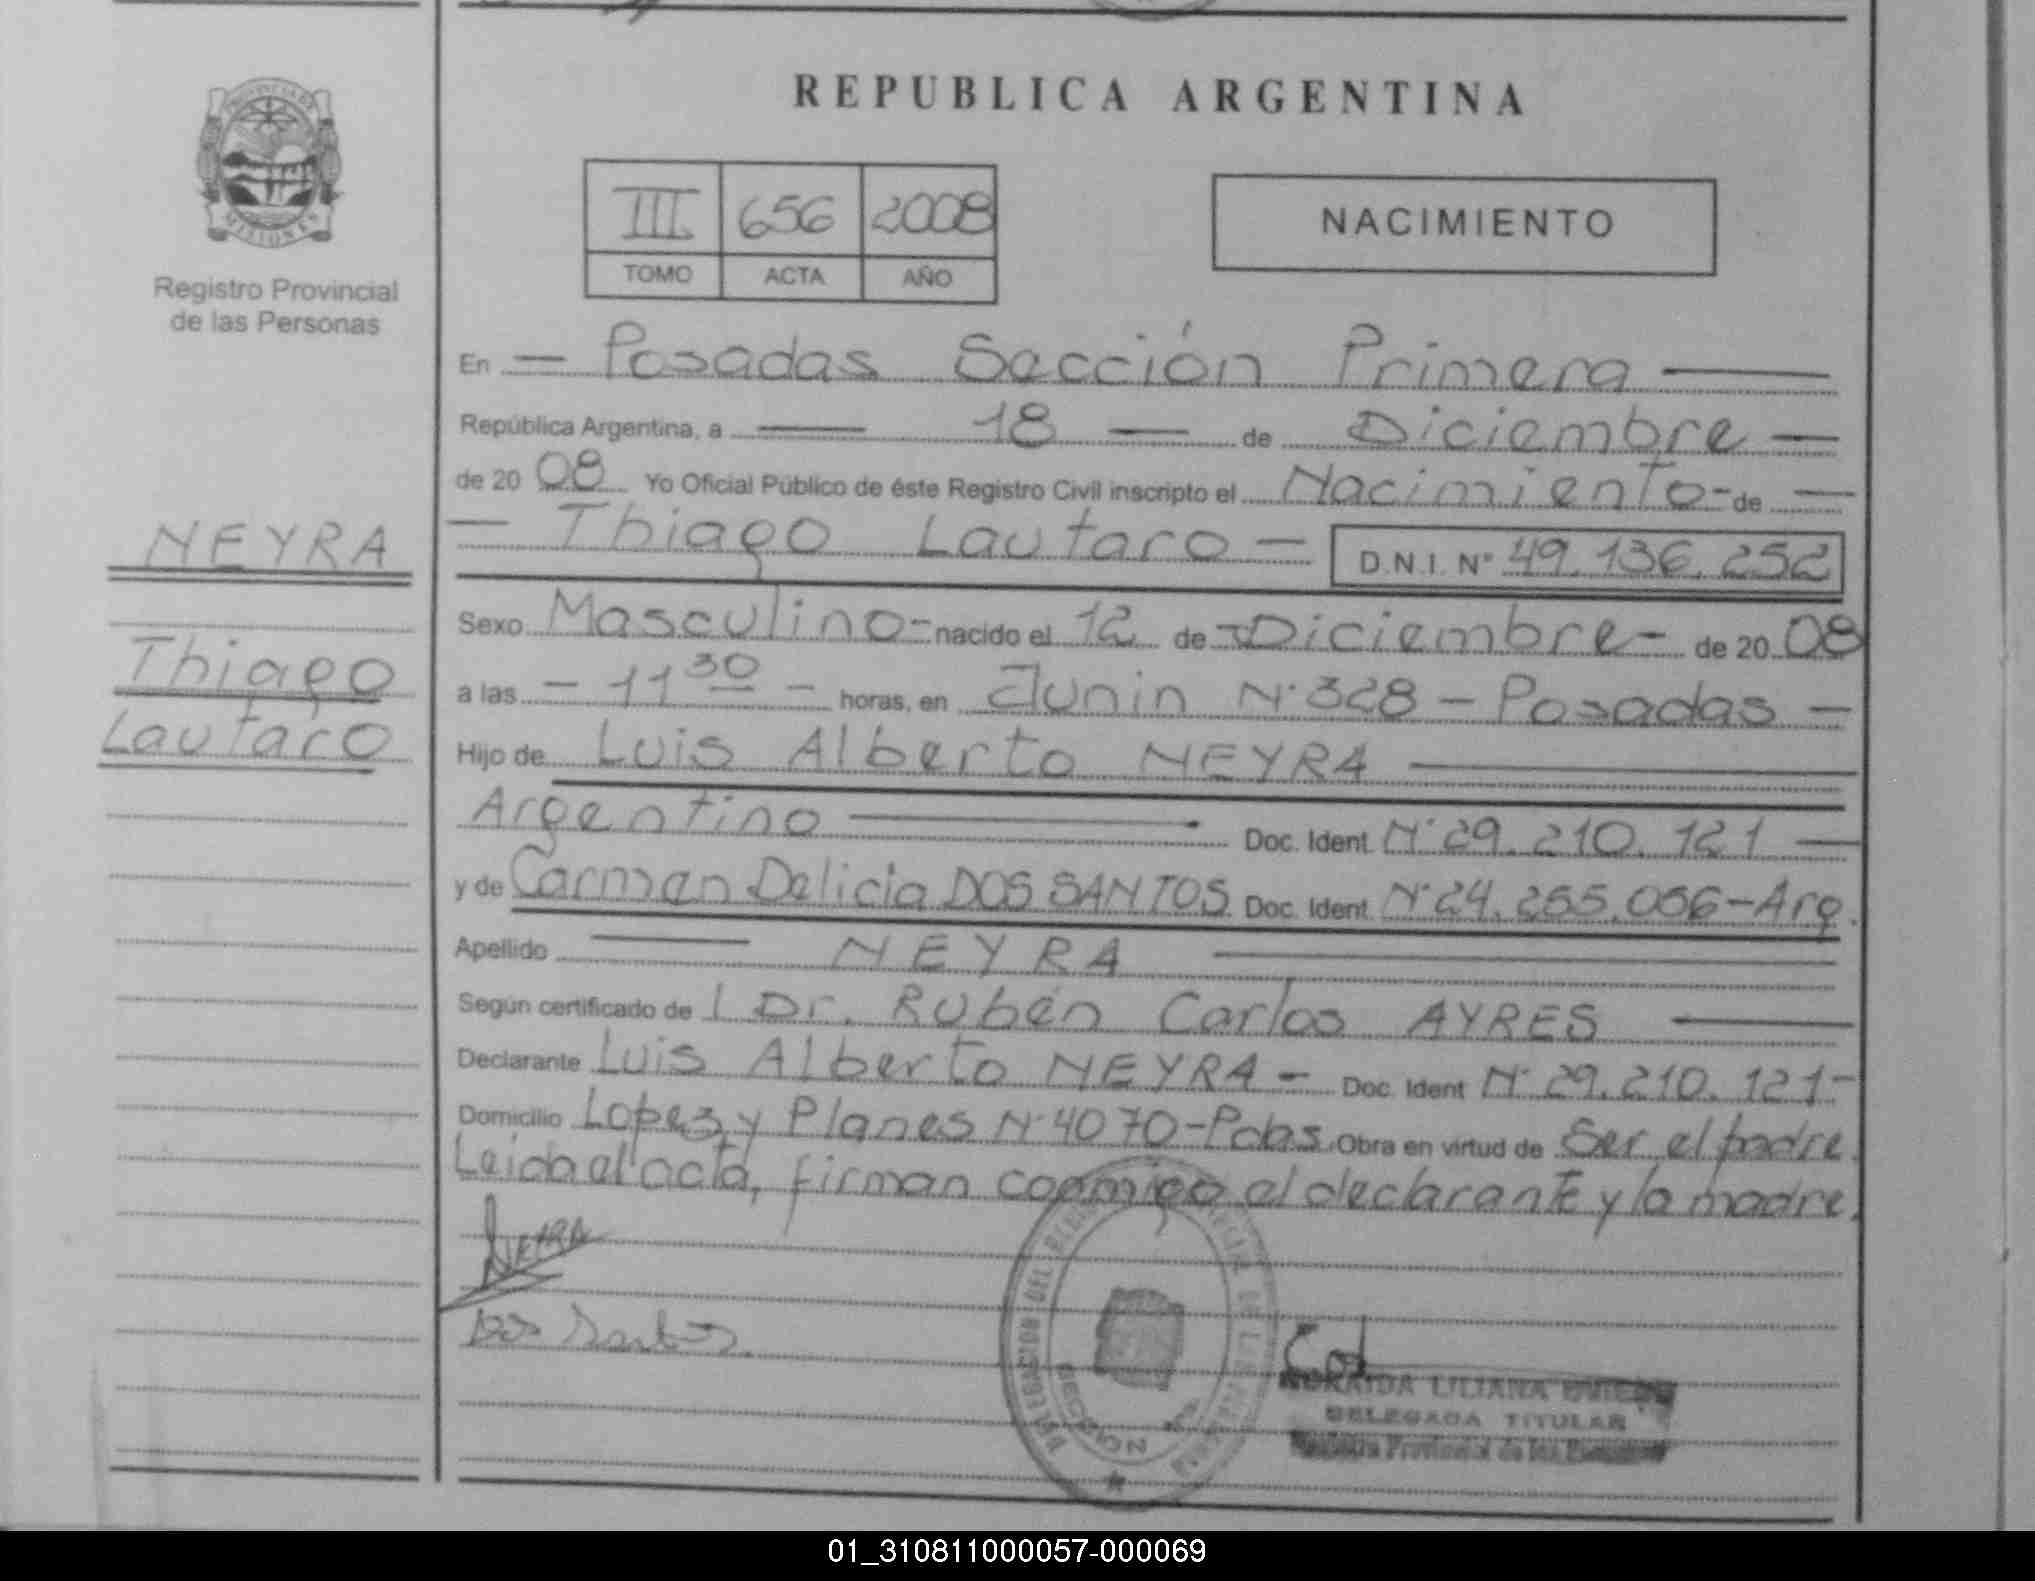 REPUBLICA ARGENTINA
PROVINCIA DE
MISIONES
Registro Provincial
de las Personas
III 656 2008
TOMO ACTA AÑO
NACIMIENTO
En — Posadas Sección Primera —
República Argentina, a — 18 — de Diciembre —
de 20 08 Yo Oficial Público de éste Registro Civil inscripto el Nacimiento - de —
— Thiago Lautaro — D.N.I. Nº 49.136.252
NEYRA
Thiago
Lautaro
Sexo Masculino - nacido el 12 de Diciembre - de 20 08
a las - 11 30 - horas, en Junin Nº 328 - Posadas -
Hijo de Luis Alberto NEYRA —
Argentino — Doc. Ident. Nº 29.210.121 —
y de Carmen Delicia DOS SANTOS Doc. Ident. Nº 24.255.056 - Arg.
Apellido — NEYRA —
Según certificado de l Dr. Rubén Carlos AYRES —
Declarante Luis Alberto NEYRA - Doc. Ident Nº 29.210.121 -
Domicilio Lopez y Planes Nº 4070 - Pdas. Obra en virtud de Ser el padre.
Leida el acta, firman conmigo el declarante y la madre.
NEYRA
Dos Santos.
DELEGACION DEL
SECCION
LILIANA
DELEGADA TITULAR
Registro Provincial de las Personas
01_310811000057-000069